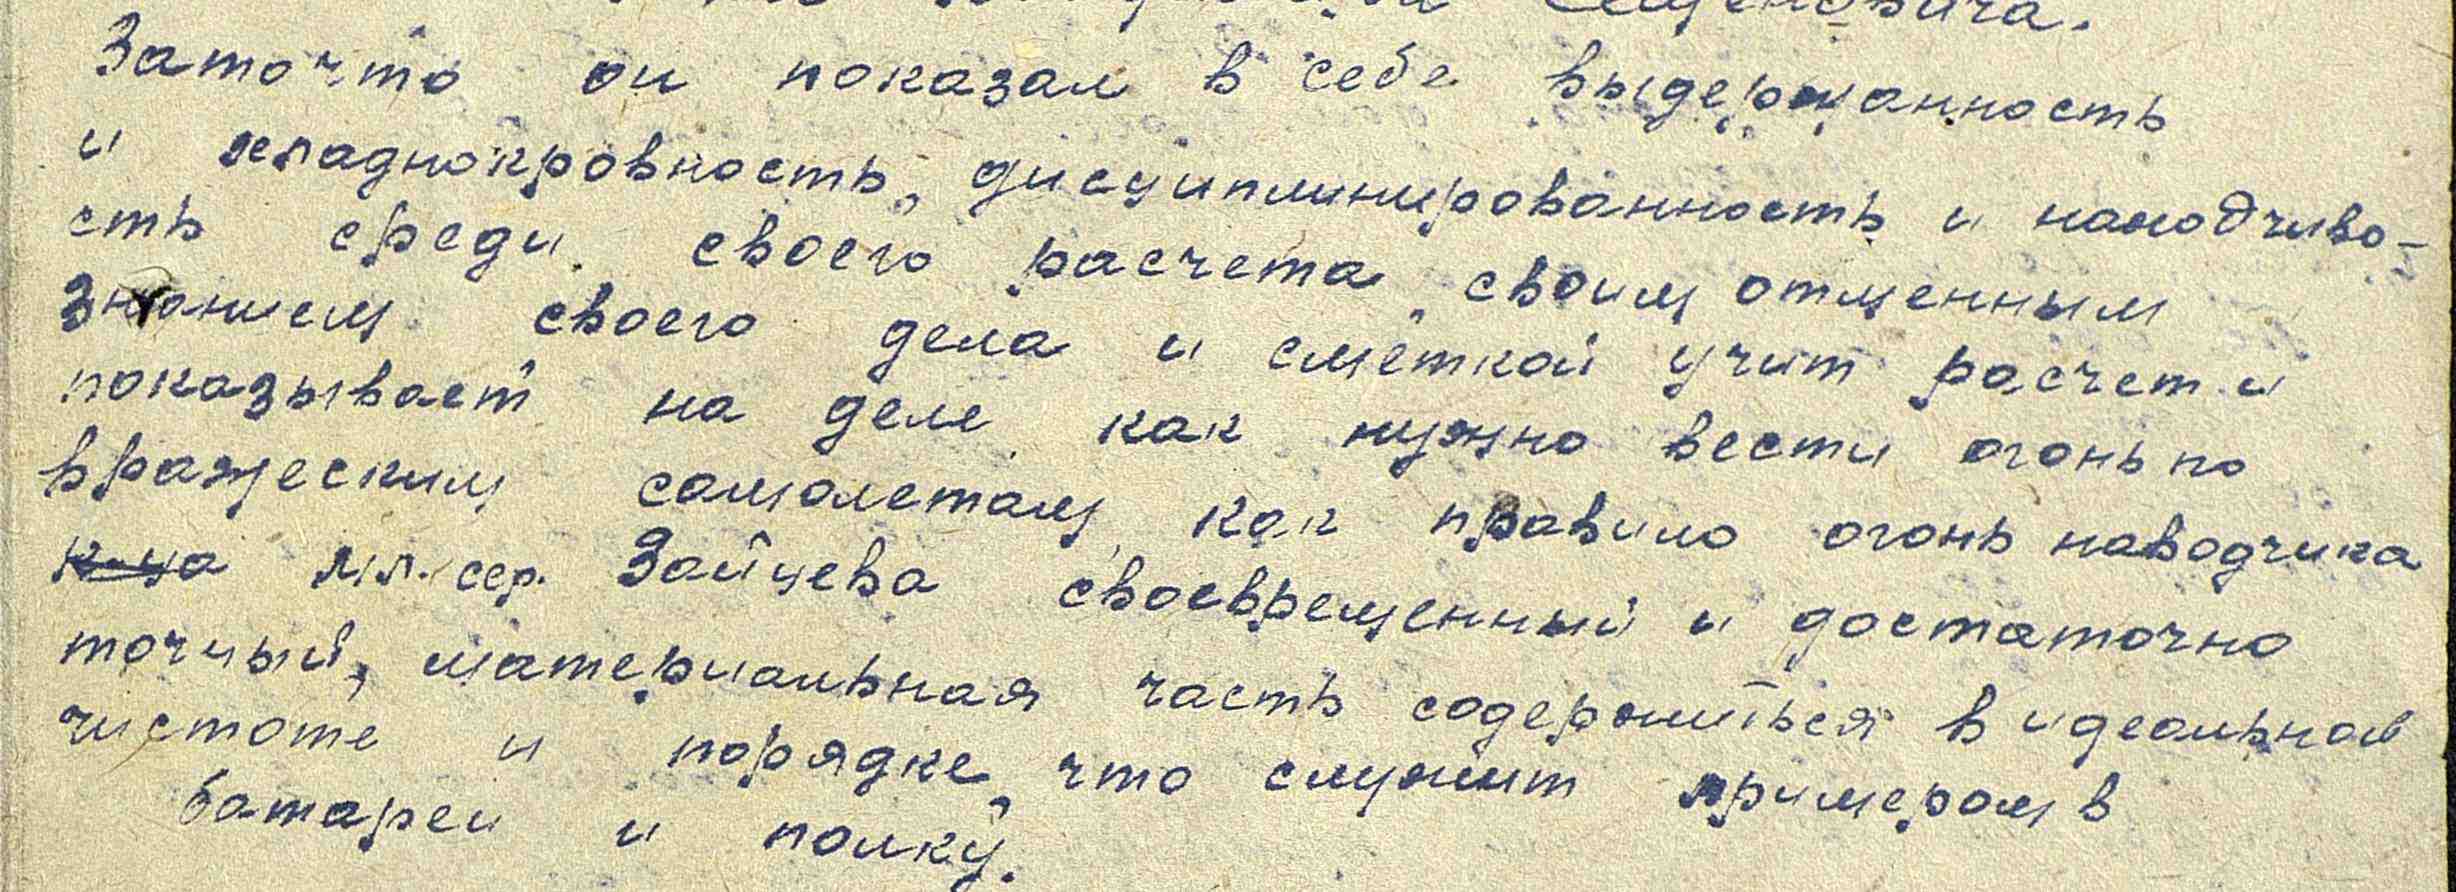 Семеновича.
Заточто он показал в себе выдержанность
и хладнокровность, дисциплинированность и находчиво-
сть среди своего расчета, своим отменным
знанием своего дела и сметкой учит расчет и
показывает на деле как нужно вести огонь по
вражеским самолетам, как правило огонь наводчика
мл. сер. Зайцева своевременный и достаточно
точный, материальная часть содержиться в идеальной
чистоте и порядке, что служит примером в
батареи и полку.